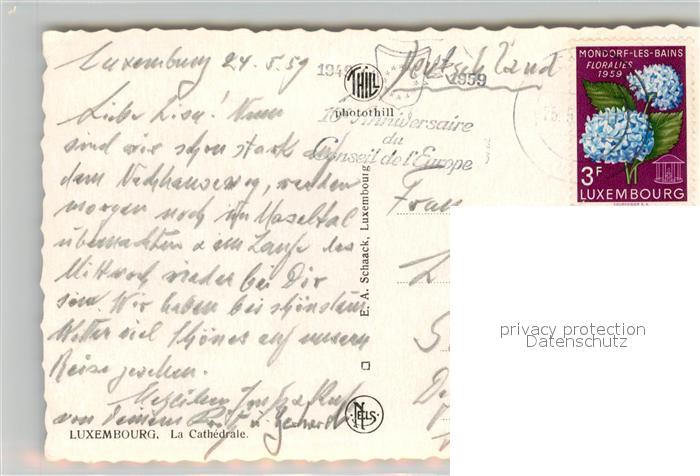 Luxemburg 24.5.59
Liebe Lisa! Nun
sind wir schon stark auf
dem Nachhauseweg, werden
morgen noch im Moseltal
übernachten & im Laufe des
Mittwoch wieder bei Dir
sein. Wir haben bei schönstem
Wetter viel Schönes auf unsern
Reise gesehen.
Herzlichen
von Deinem
LUXEMBOURG. La Cathédrale.
E. A. Schaack, Luxembourg
NELS
THILL
photothill
1949 1959
10e Anniversaire
du
Conseil de l'Europe
Deutschland
Frau
MONDORF-LES-BAINS
FLORALIES
1959
3F
LUXEMBOURG
privacy protection
Datenschutz